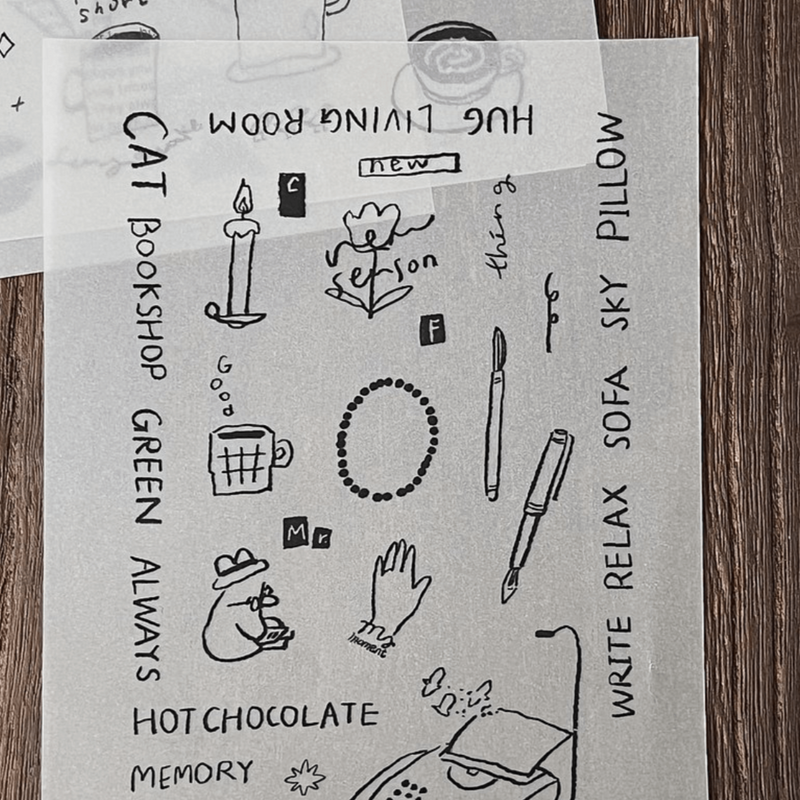 HUG LIVING ROOM
new
C
CAT BOOKSHOP GREEN ALWAYS
thing
person
F
Good
WRITE RELAX SOFA SKY PILLOW
Mr.
my
moment
HOT CHOCOLATE
MEMORY